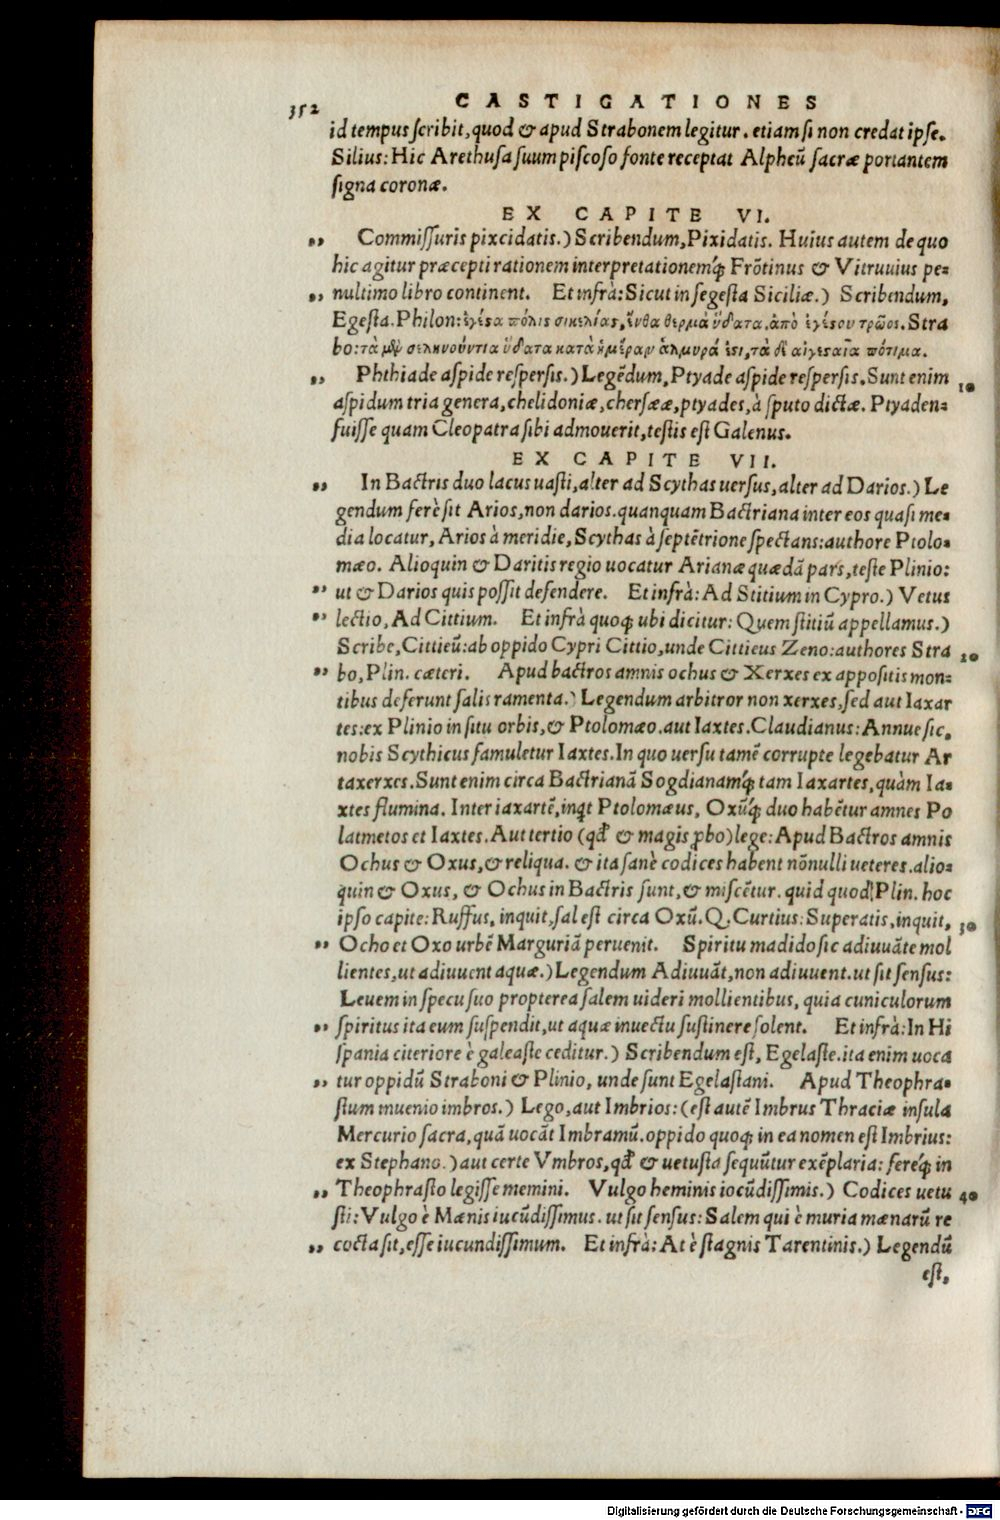 352 CASTIGATIONES
id tempus scribit, quod & apud Strabonem legitur. etiam si non credat ipse.
Silius: Hic Arethusa suum piscoso fonte receptat Alpheũ sacræ portantem
signa coronæ.
EX CAPITE VI.
„ Commissuris pixcidatis.) Scribendum, Pixidatis. Huius autem de quo
hic agitur præcepti rationem interpretationemq́; Frõtinus & Vitruuius pe-
„ nultimo libro continent. Et infrà: Sicut in segesta Siciliæ.) Scribendum,
Egesta. Philon: ἐγέςα πόλις σικελίας, ἔνθα θερμὰ ὕδατα, ἀπὸ ἐγέςου τρῶος. Stra
bo: τὰ μὲν σεληνούντια ὕδατα κατὰ ἡμέραν ἁλμυρά ἐςι, τὰ δὲ αἰγεςαῖα πότιμα.
„ Phthiade aspide respersis.) Legẽdum, Ptyade aspide respersis. Sunt enim 10
aspidum tria genera, chelidoniæ, chersææ, ptyades, à sputo dictæ. Ptyaden-
fuisse quam Cleopatra sibi admouerit, testis est Galenus.
EX CAPITE VII.
„ In Bactris duo lacus uasti, alter ad Scythas uersus, alter ad Darios.) Le
gendum ferè sit Arios, non darios. quanquam Bactriana inter eos quasi me-
dia locatur, Arios à meridie, Scythas à septẽtrione spectans: authore Ptolo-
mæo. Alioquin & Daritis regio uocatur Arianæ quædã pars, teste Plinio:
„ ut & Darios quis possit defendere. Et infrà: Ad Stitium in Cypro.) Vetus
„ lectio, Ad Cittium. Et infrà quoq; ubi dicitur: Quem stitiũ appellamus.)
Scribe, Cittieũ: ab oppido Cypri Cittio, unde Cittieus Zeno: authores Stra 20
„ bo, Plin. cæteri. Apud bactros amnis ochus & Xerxes ex appositis mon-
tibus deferunt salis ramenta.) Legendum arbitror non xerxes, sed aut Iaxar
tes: ex Plinio in situ orbis, & Ptolomæo. aut Iaxtes. Claudianus: Annue sic,
nobis Scythicus famuletur Iaxtes. In quo uersu tamẽ corrupte legebatur Ar
taxerxes. Sunt enim circa Bactrianã Sogdianamq́; tam Iaxartes, quàm Ia-
xtes flumina. Inter iaxartẽ, inqt Ptolomæus, Oxũq́; duo habẽtur amnes Po
latmetos et Iaxtes. Aut tertio (qd & magis ꝓbo) lege: Apud Bactros amnis
Ochus & Oxus, & reliqua. & ita sanè codices habent nõnulli ueteres. alio-
quin & Oxus, & Ochus in Bactris sunt, & miscẽtur. quid quod Plin. hoc
ipso capite: Ruffus, inquit, sal est circa Oxũ. Q. Curtius: Superatis, inquit, 30
„ Ocho et Oxo urbẽ Marguriã peruenit. Spiritu madido sic adiuuãte mol
lientes, ut adiuuent aquæ.) Legendum Adiuuãt, non adiuuent. ut sit sensus:
Leuem in specu suo propterea salem uideri mollientibus, quia cuniculorum
„ spiritus ita eum suspendit, ut aquæ inuectu sustinere solent. Et infrà: In Hi
spania citeriore è galeaste ceditur.) Scribendum est, Egelaste. ita enim uoca
„ tur oppidũ Straboni & Plinio, unde sunt Egelastani. Apud Theophra-
stum inuenio imbros.) Lego, aut Imbrios: (est autẽ Imbrus Thraciæ insula
Mercurio sacra, quã uocãt Imbramũ. oppido quoq; in ea nomen est Imbrius:
ex Stephano.) aut certe Vmbros, qd & uetusta sequũtur exẽplaria: fereq́; in
„ Theophrasto legisse memini. Vulgo heminis iocũdissimis.) Codices uetu 40
sti: Vulgo è Mænis iucũdissimus. ut sit sensus: Salem qui è muria mænarũ re
„ cocta sit, esse iucundissimum. Et infrà: At è stagnis Tarentinis.) Legendũ
est,
Digitalisierung gefördert durch die Deutsche Forschungsgemeinschaft - DFG